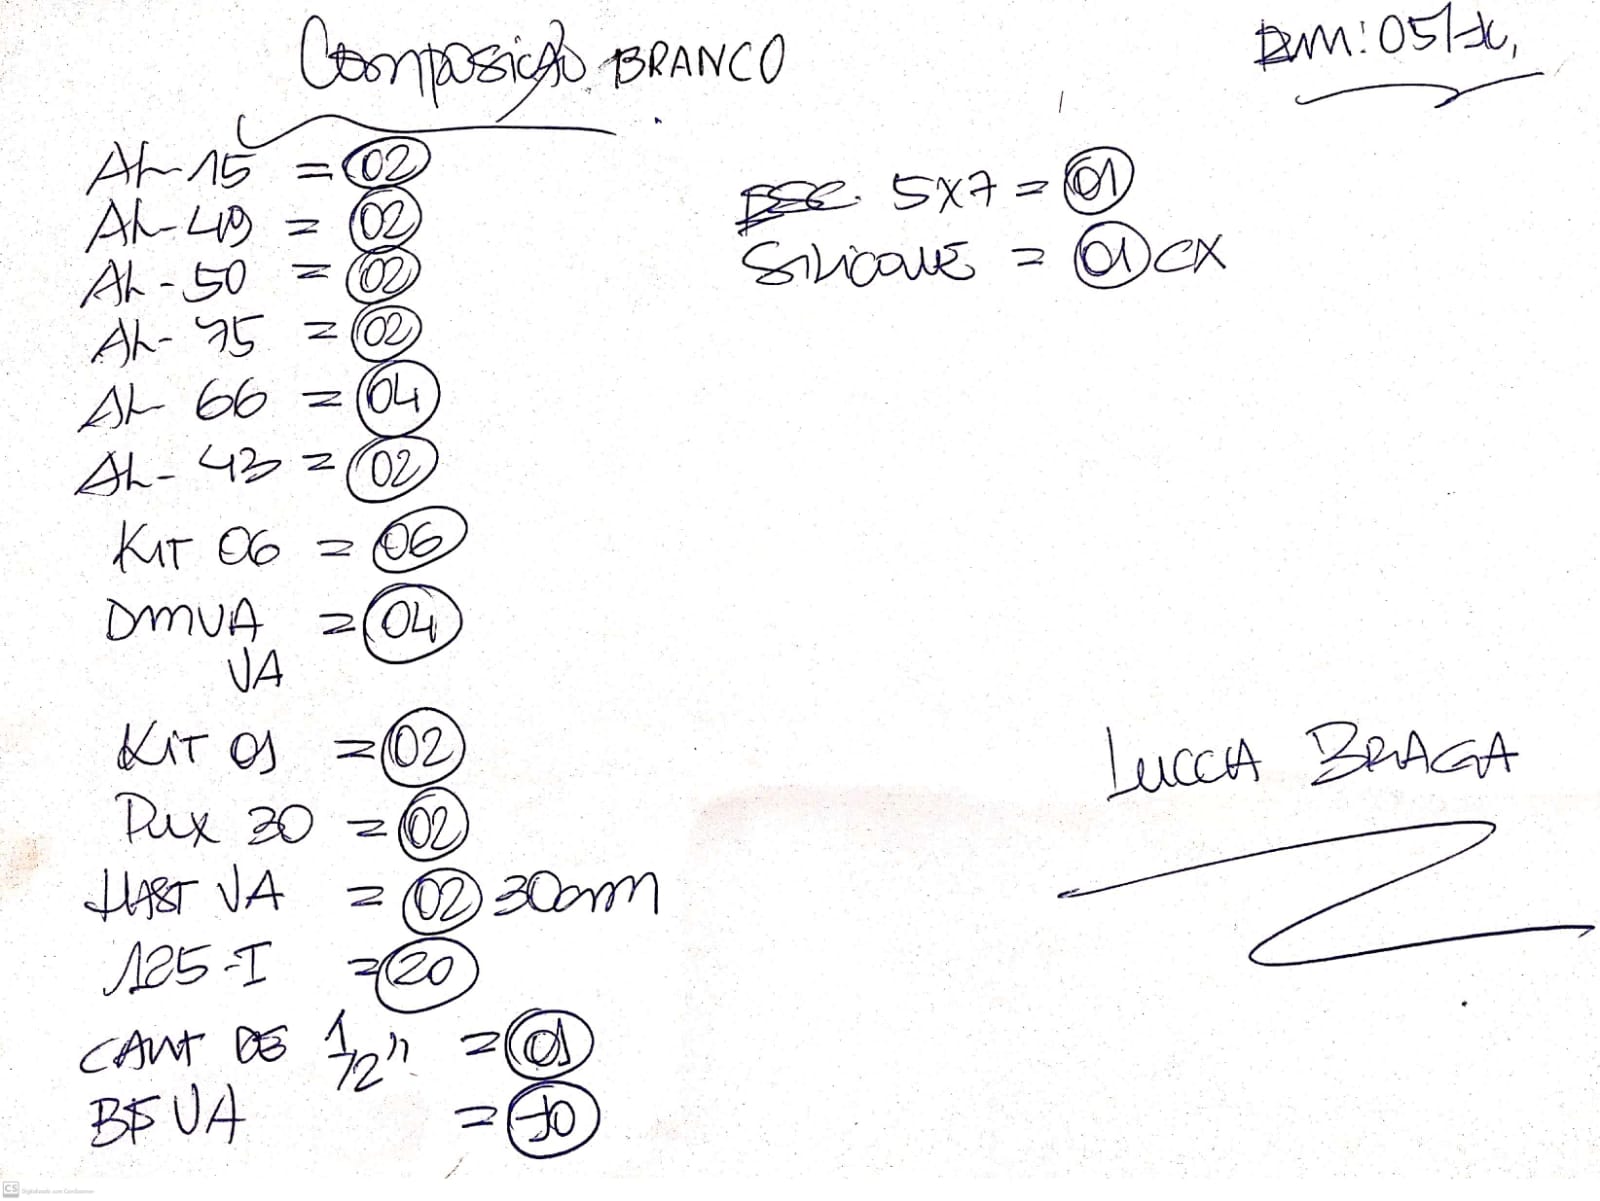 Composição BRANCO
AL-15 = 02
AL-49 = 02
AL-50 = 02
AL-75 = 02
AL-66 = 04
AL-43 = 02
KIT 06 = 06
DMVA = 04
VA
KIT 01 = 02
Pux 30 = 02
HAST VA = 02 30cm
125-I = 20
CANT DE 1/2" = 01
BF VA = 10
5X7 = 01
SILICONE = 01 CX
LUCCA BRAGA
Digitalizado com CamScanner